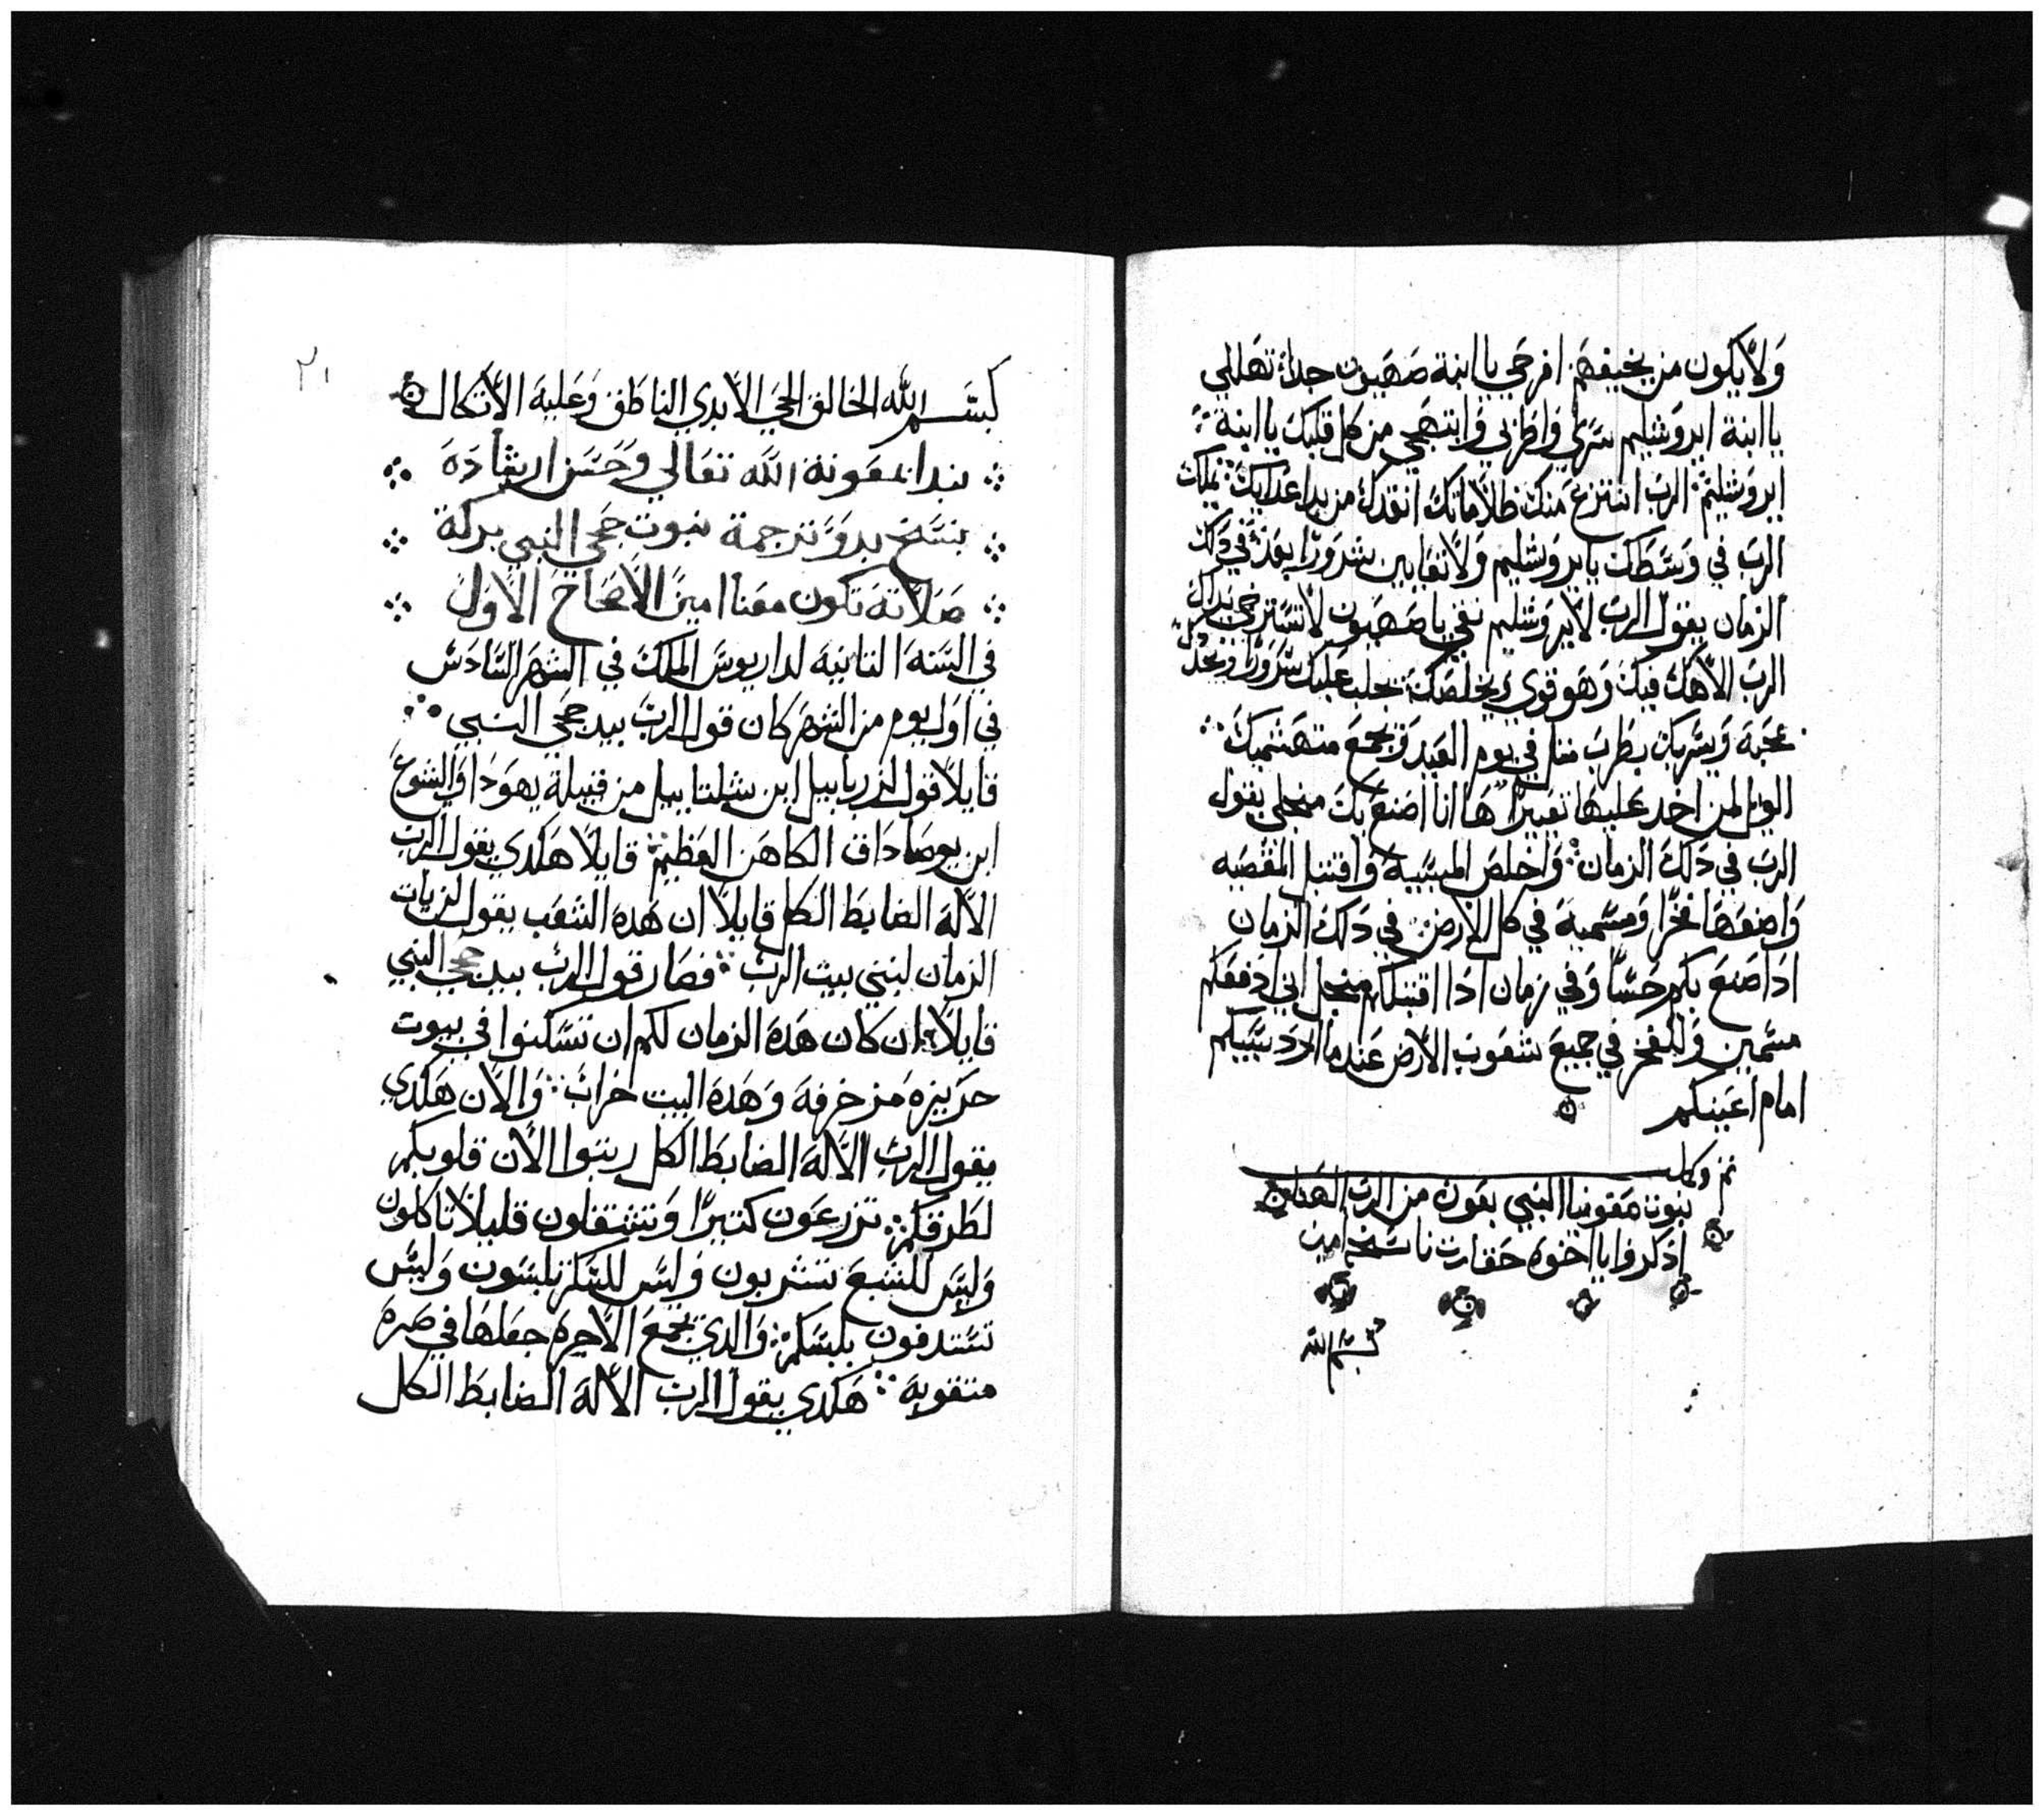 ولا يكون من يخيفهم افرحي يا ابنة صهيون جداً تهللي
يا ابنة ايروشليم سري واطربي وابتهجي من كل قلبك يا ابنة
ايروشليم الرب انتزع منك ظلاماتك انقدك من يد اعدايك يملك
الرب في وسطك يا ايروشليم ولا تعاينين شروراً بعد في دلك
الزمان يقول الرب لايروشليم تقي يا صهيون لا تسترخي يداك
الرب الاهك فيك وهو قوي يخلصك يجلب عليك سروراً ويجدد
محبة ويسر بك بطرب مثل في يوم العيد ويجمع متهشميك
الويل لمن اخد عليها تعييراً ها انا اصنع بك من اجلي يقول
الرب في دلك الزمان واخلص المسبية واقتبل المقصيه
واضعها فخراً ومسمية في كل الارض في دلك الزمان
ادا صنع بكم حسناً وفي زمان ادا اقتبلكم من اجل اني ادفعكم
مسمين وللفخر في جميع شعوب الارض عندما ارد سبيكم
امام اعينكم
تم وكمل
نبوت صفونيا النبي بعون من الرب
ادكروا يا اخوه حقارت ناسخه امين
بسم الله
٢١
بسم الله الخالق الحي الابدي الناطق وعليه الاتكال
نبدا بمعونة الله تعالي وحسن ارشاده
بنسخ بدو ترجمة نبوت حجي النبي بركة
صلاته تكون معنا امين الاصحاح الاول
في السنه التانيه لداريوس الملك في الشهر السادس
في اول يوم من الشهر كان قول الرب بيد حجي النبي
قايلاً قول لزربابيل ابن شلتاييل من قبيلة يهودا واليشوع
ابن يوصاداق الكاهن العظيم قايلاً هكدي يقول الرب
الاله الضابط الكل قايلاً ان هده الشعب يقول لم يات
الزمان لنبني بيت الرب فصار قول الرب بيد حجي النبي
قايلاً ان كان هده الزمان لكم ان تسكنوا في بيوت
حريزه مزخرفه وهده البيت خراب والان هكدي
يقول الرب الاله الضابط الكل رتبوا الان قلوبكم
لطرقكم تزرعون كتيراً وتشتغلون قليلاً تاكلون
وليس للشبع تشربون وليس للسكر تلبسون وليس
تستدفون بلبسكم والدي يجمع الاجره جعلها في صره
متقوبه هكدي يقول الرب الاله الضابط الكل